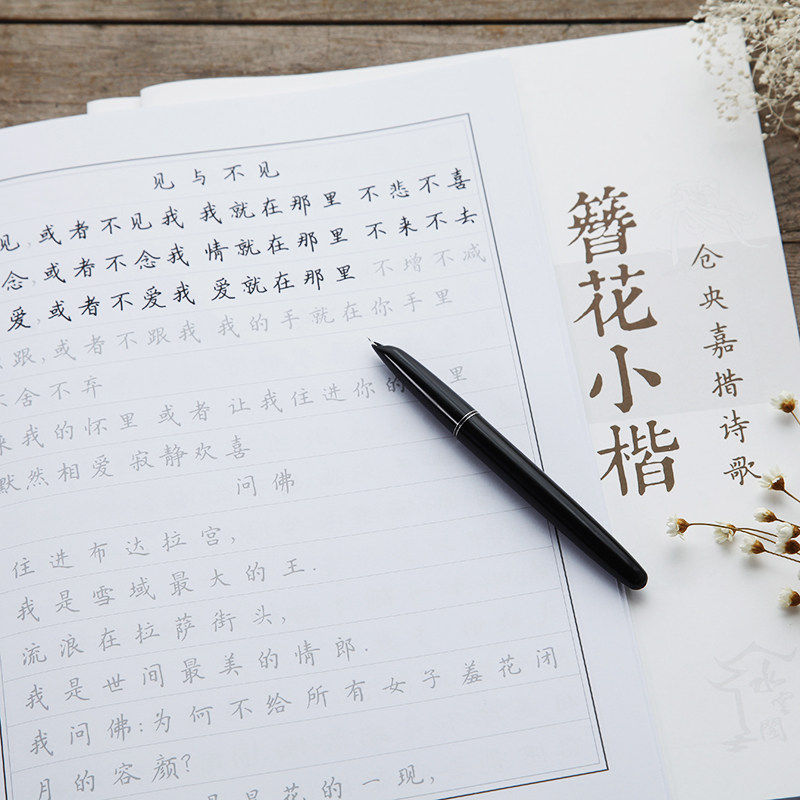 见与不见
见,或者不见我 我就在那里 不悲不喜
念,或者不念我 情就在那里 不来不去
爱,或者不爱我 爱就在那里 不增不减
跟,或者不跟我 我的手就在你手里
不舍不弃
来我的怀里 或者 让我住进你的 里
默然相爱 寂静欢喜
问佛
住进布达拉宫,
我是雪域最大的王.
流浪在拉萨街头,
我是世间最美的情郎.
我问佛:为何不给所有女子羞花闭
月的容颜?
是花的一现,
簪花小楷
仓央嘉措诗歌